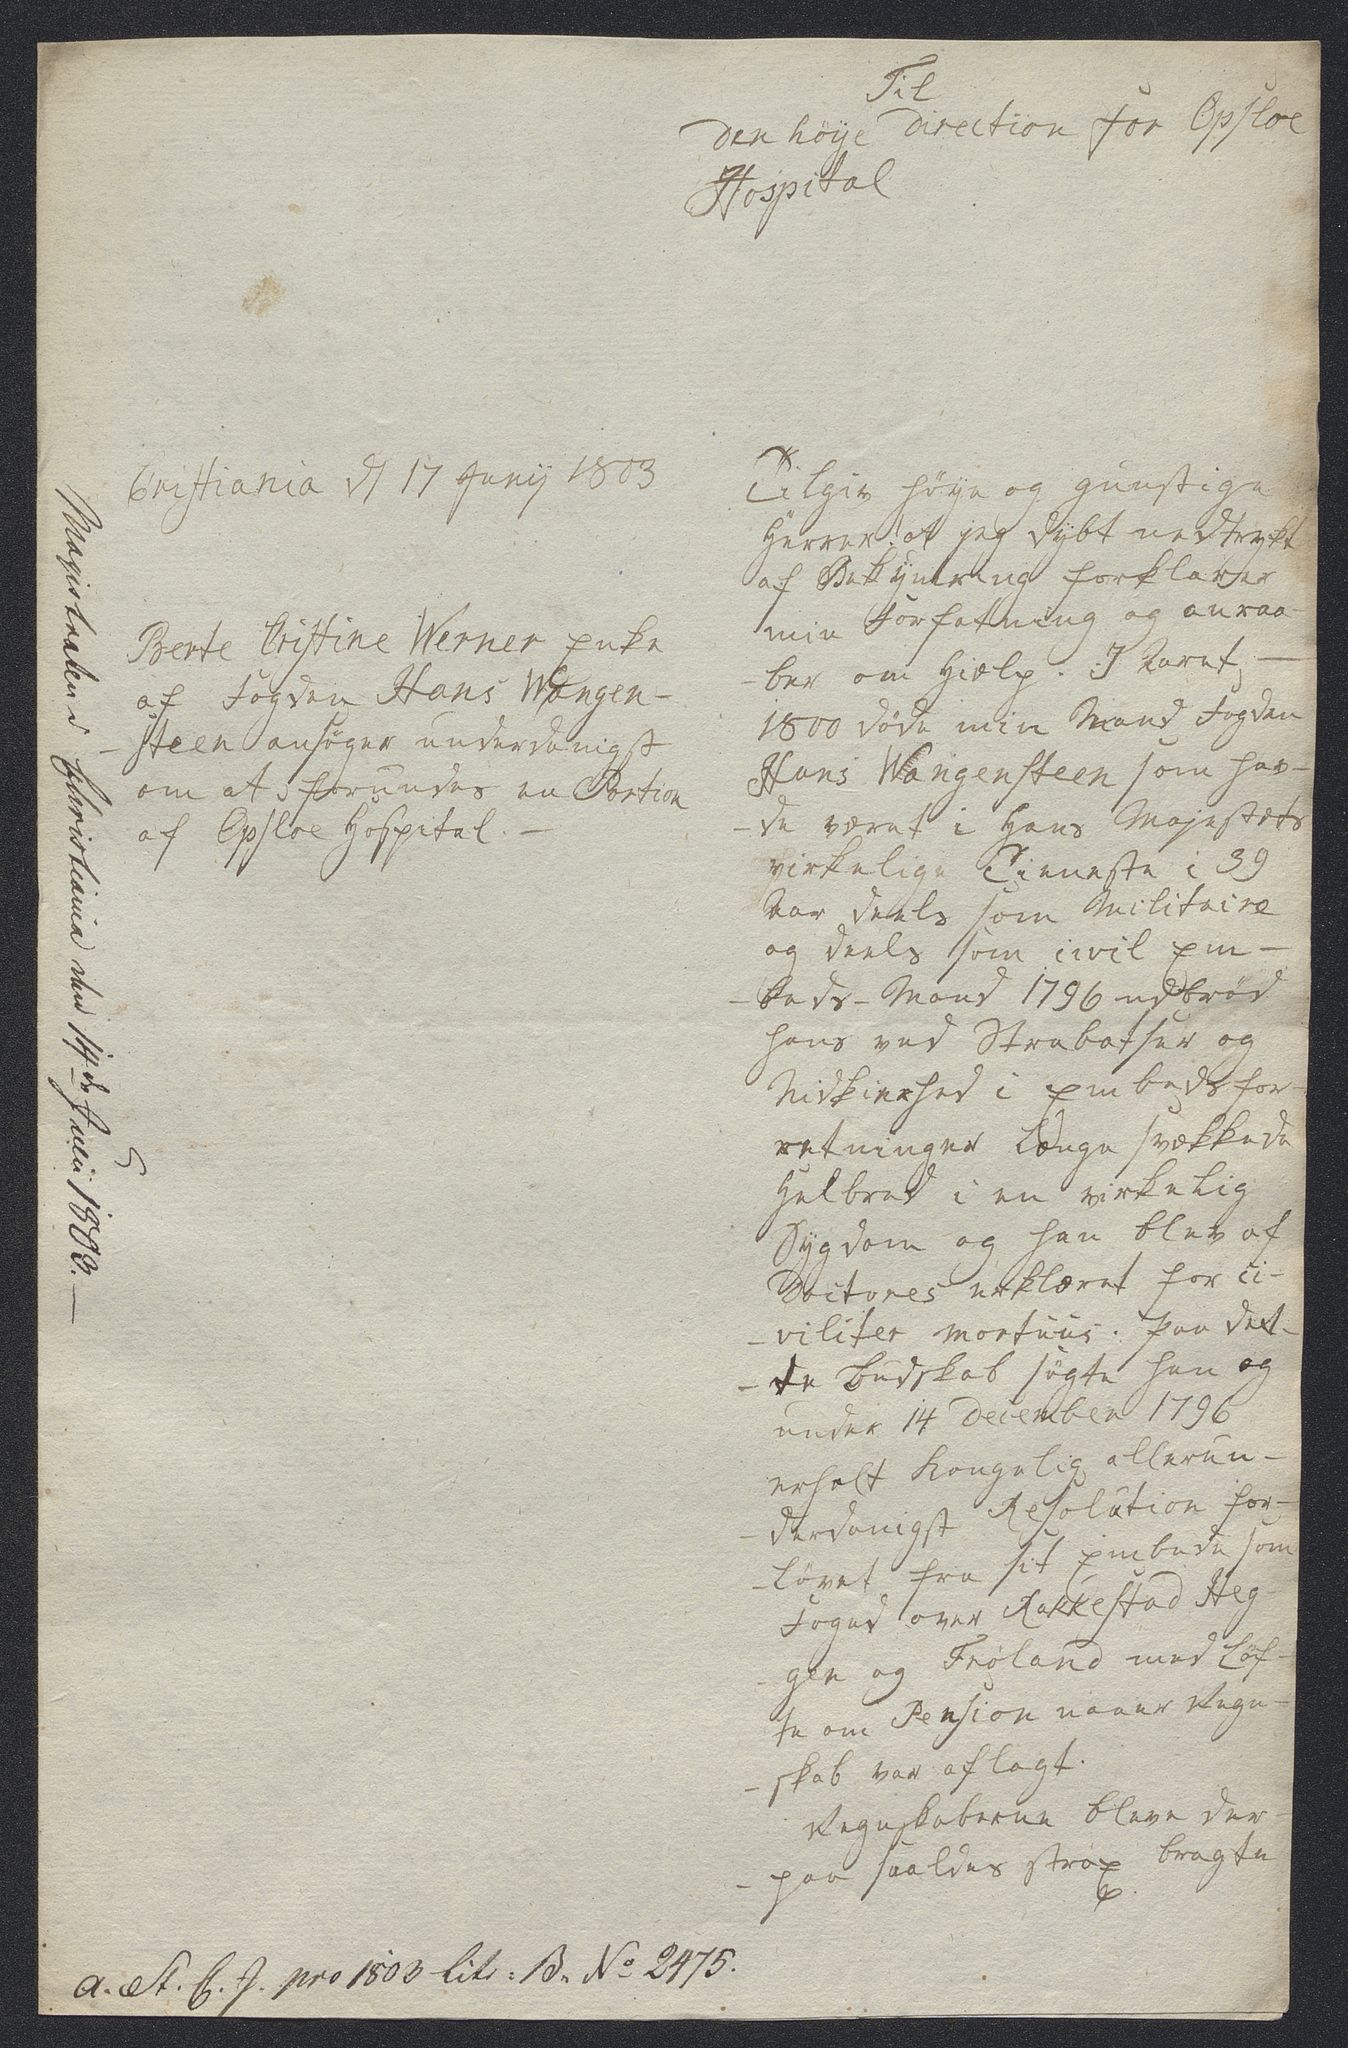 Til
den höye Direction for Opsloe
Hospital
Cristiania d 17 Junij 1803
Berte Cristine Werner Enke
af Fogden Hans Wangen-
-steen ansøger underdanigst
om at forundes en Portion
af Opsloe Hospital. -
Tilgiv høye og gunstige
Herrer! at jeg dybt nedtrykt
af Bekymring forklarer
min Forfatning og anraa-
-ber om Hielp. I Aaret
1800 døde min Mand Fogden
Hans Wangensteen som hav-
-de været i Hans Majestets
virkelige Tieneste i 39
Aar deels som Militaire
og deels som civil Em-
-beds-Mand 1796 udbrød
hans ved Strabatser og
Nidkierhed i Embedsfor-
retninger længe svækkede
Helbred i en virkelig
Sygdom og han blev af
Doctores erklæret for ci-
-viliter mortuus. Paa det-
-te Budskab søgte han og
under 14 December 1796
erholt Kongelig allerun-
-derdanigst Resolution for-
-løvet fra sit Embede som
Foged over Rakkestad Heg-
-gen og Frøland med Løf-
te om Pension naar Regn-
-skab var aflagt.
Regnskaberne bleve der-
-paa saaledes strax bragte
Magistraten i Christiania den 14de Juli 1803. -
a. St. C. J. pro 1803 lit: B. No 2475.